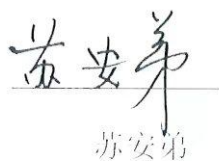 苏安弟
苏安弟